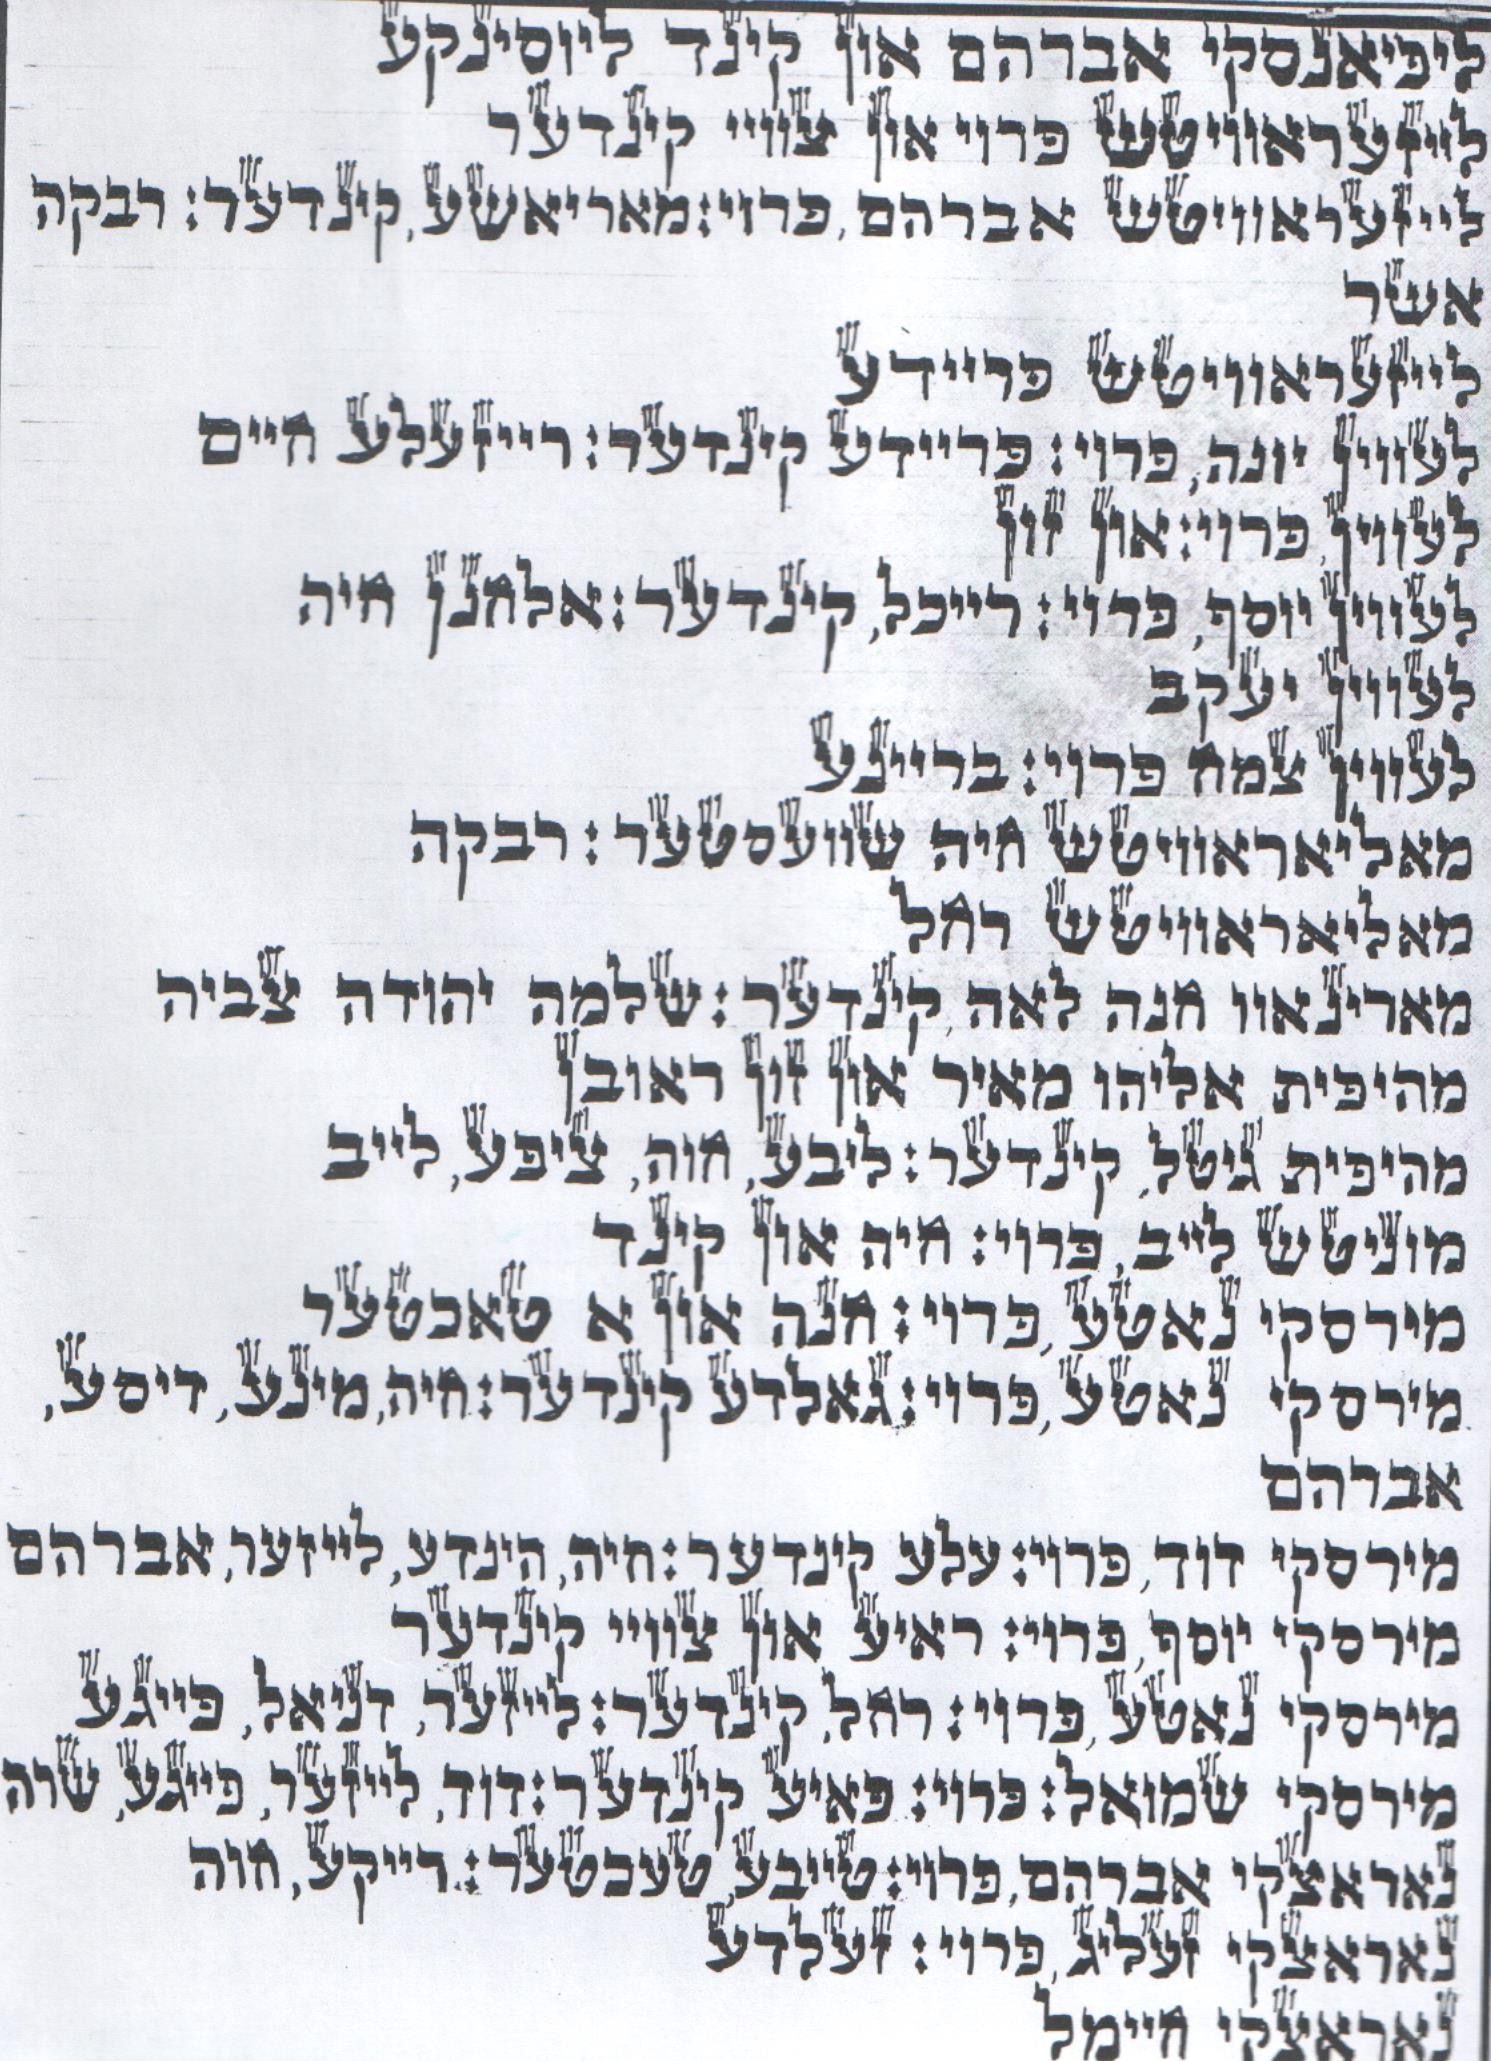 ליפיאנסקי אברהם און קינד ליוסינקע
לייזעראוויטש פרוי און צוויי קינדער
לייזעראוויטש אברהם, פרוי: מאריאשע, קינדער: רבקה
אשר
לייזעראוויטש פריידע
לעווין יונה, פרוי: פריידע קינדער: רייזעלע חיים
לעווין, פרוי: און זון
לעווין יוסף, פרוי: רייכל, קינדער: אלחנן חיה
לעווין יעקב
לעווין צמח פרוי: בריינע
מאליאראוויטש חיה שוועסטער: רבקה
מאליאראוויטש רחל
מארינאוו חנה לאה, קינדער: שלמה יהודה צביה
מהיפית אליהו מאיר און זון ראובן
מהיפית גיטל, קינדער: ליבע, חוה, ציפע, לייב
מוניטש לייב, פרוי: חיה און קינד
מירסקי נאטע, פרוי: חנה און א טאכטער
מירסקי נאטע, פרוי: גאלדע קינדער: חיה, מינע, דיסע,
אברהם
מירסקי דוד, פרוי: עלע קינדער: חיה, הינדע, לייזער, אברהם
מירסקי יוסף, פרוי: ראיע און צוויי קינדער
מירסקי נאטע, פרוי: רחל, קינדער: לייזער, דניאל, פייגע
מירסקי שמואל: פרוי: פאיע קינדער: דוד, לייזער, פייגע, שרה
נאראצקי אברהם, פרוי: טייבע, טעכטער: רייקע, חוה
נאראצקי זעליג, פרוי: זעלדע
נאראצקי חיימל